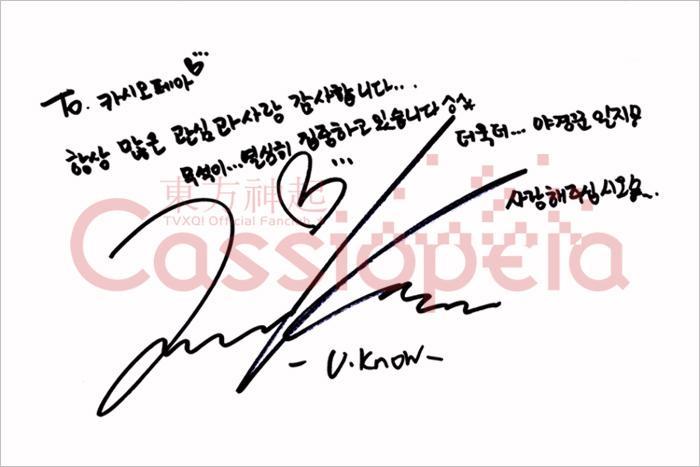 To. 카시오페아
항상 많은 관심과 사랑 감사합니다...
묵석이... 열심히 집중하고 있습니다
더욱더... 야경꾼 일지 많이
사랑해주십시오
東方神起
TVXQ! Official Fanclub
Cassiopeia
- U.Know -